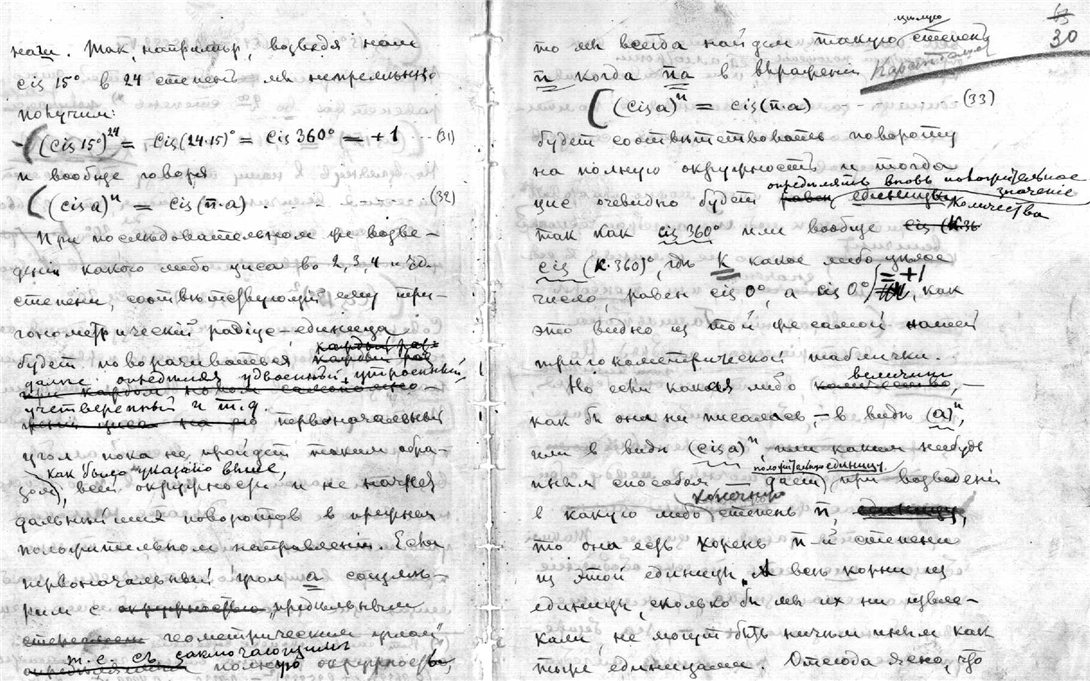 наш. Так, например, возведя нам
cis 15° в 24 степень, мы непременно
получим:
(cis 15°)²⁴ = cis(24·15)° = cis 360° = +1 -- (31)
и вообще говоря
(cis a)ⁿ = cis(n·a) - - - - (32)
При последовательном же возве-
дении какого либо циса во 2, 3, 4 и т.д.
степени, соответствующий ему три-
гонометрический радиус-единица
будет поворачиваться
далее, определяя удвоенный, утроенный,
учетверенный и т.д.
первоначальный
угол пока не пройдет таким обра-
как было указано выше,
зом, всей окружности и не начнет
дальнейших поворотов в прежнем
положительном направлении. Если
первоначальный угол a соизме-
рим с окружностью предельным
геометрическим углом
т.е. съ заключающимъ
полную окружность,
63
30
целую
то мы всегда найдем такую степень
n когда na в выражении
(cis a)ⁿ = cis(n·a) - - (33)
будет соответствовать повороту
на полную окружность и тогда
определять вновь положительное
цис очевидно будет равен единицы значение
количества
так как cis 360° или вообще cis (K·36
cis (K·360)°, где K какое либо целое
=+1
число, равен cis 0°, а cis 0° , как
это видно из той же самой нашей
тригонометрической таблички.
величина
Но если какая либо количество, -
как бы она ни писалась, - в виде (a)ⁿ,
или в виде (cis a)ⁿ, или каким нибудь
положительную единицу,
иным способом - дает, при возведении
конечную
в какую либо степень n, единицу,
то она есть корень n-й степени
из этой единицы. А весь корни из
единицы, сколько бы мы их ни извле-
кали, не могут быть ничем иным как
теми же единицами. Отсюда ясно, что